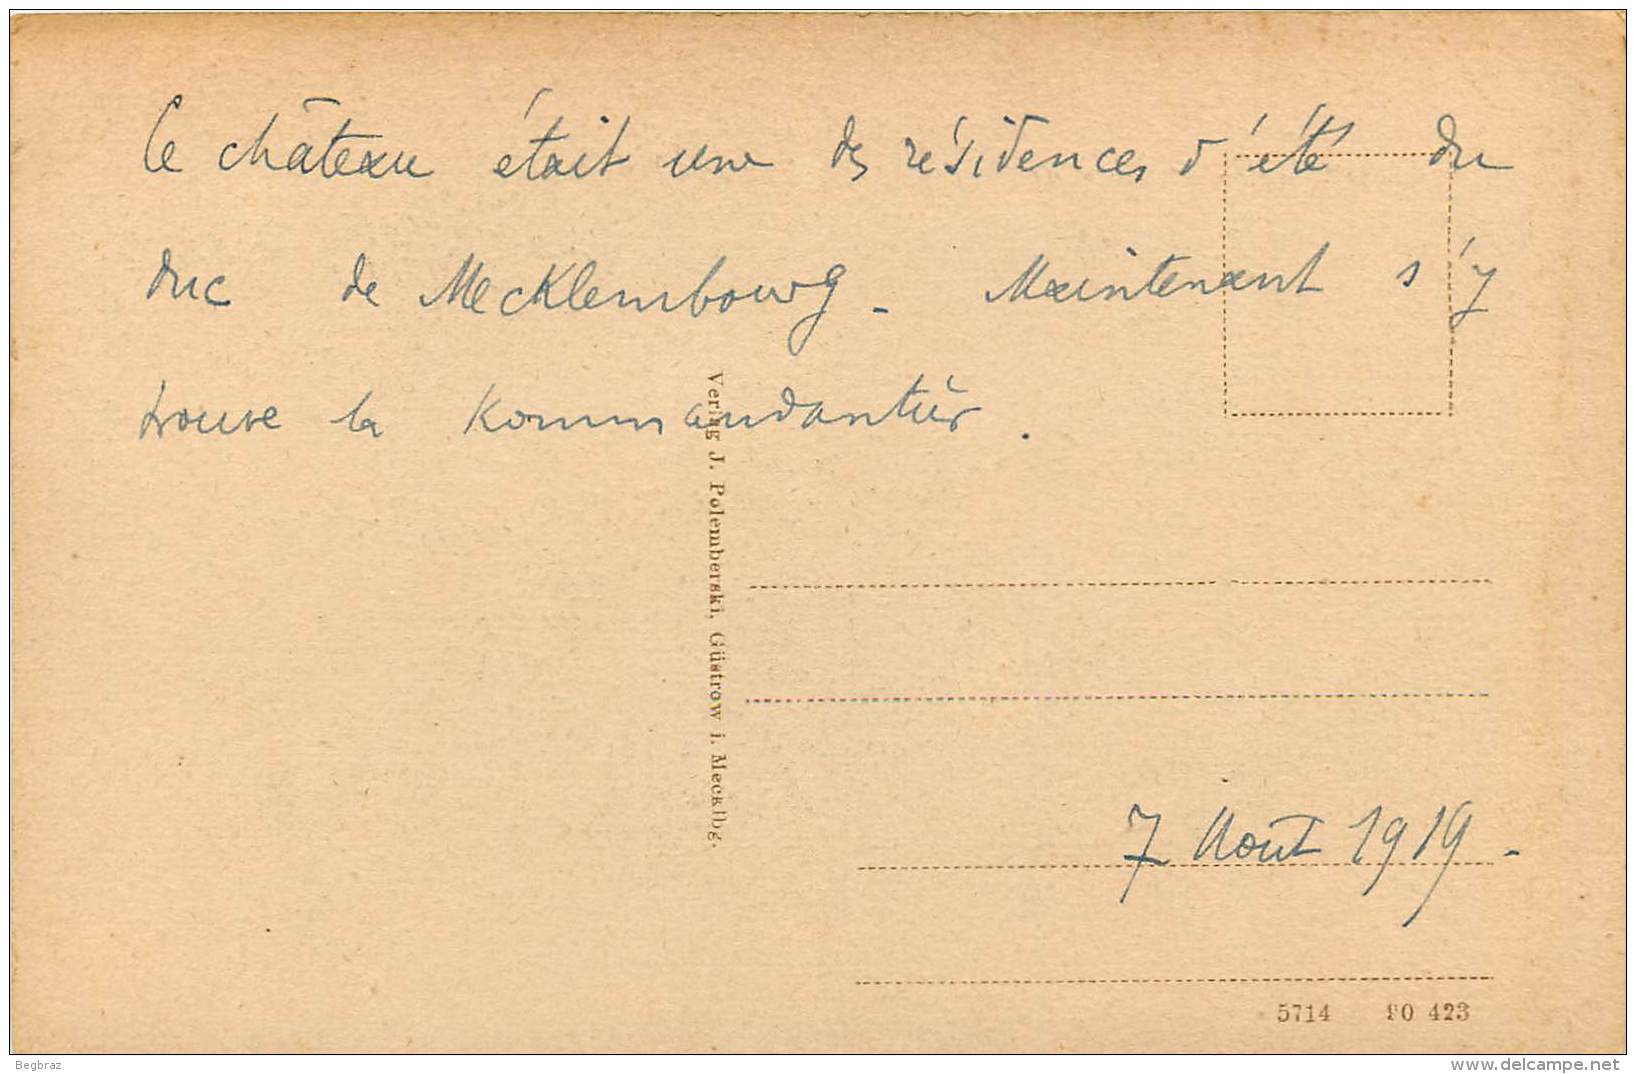 Ce château était une des résidences d'été du
duc de Mecklembourg. Maintenant s'y
trouve la Kommandantür.
Verlag J. Polemberski, Güstrow i. Mecklbg.
7 Août 1919.
5714 90 423
Begbraz
www.delcampe.net